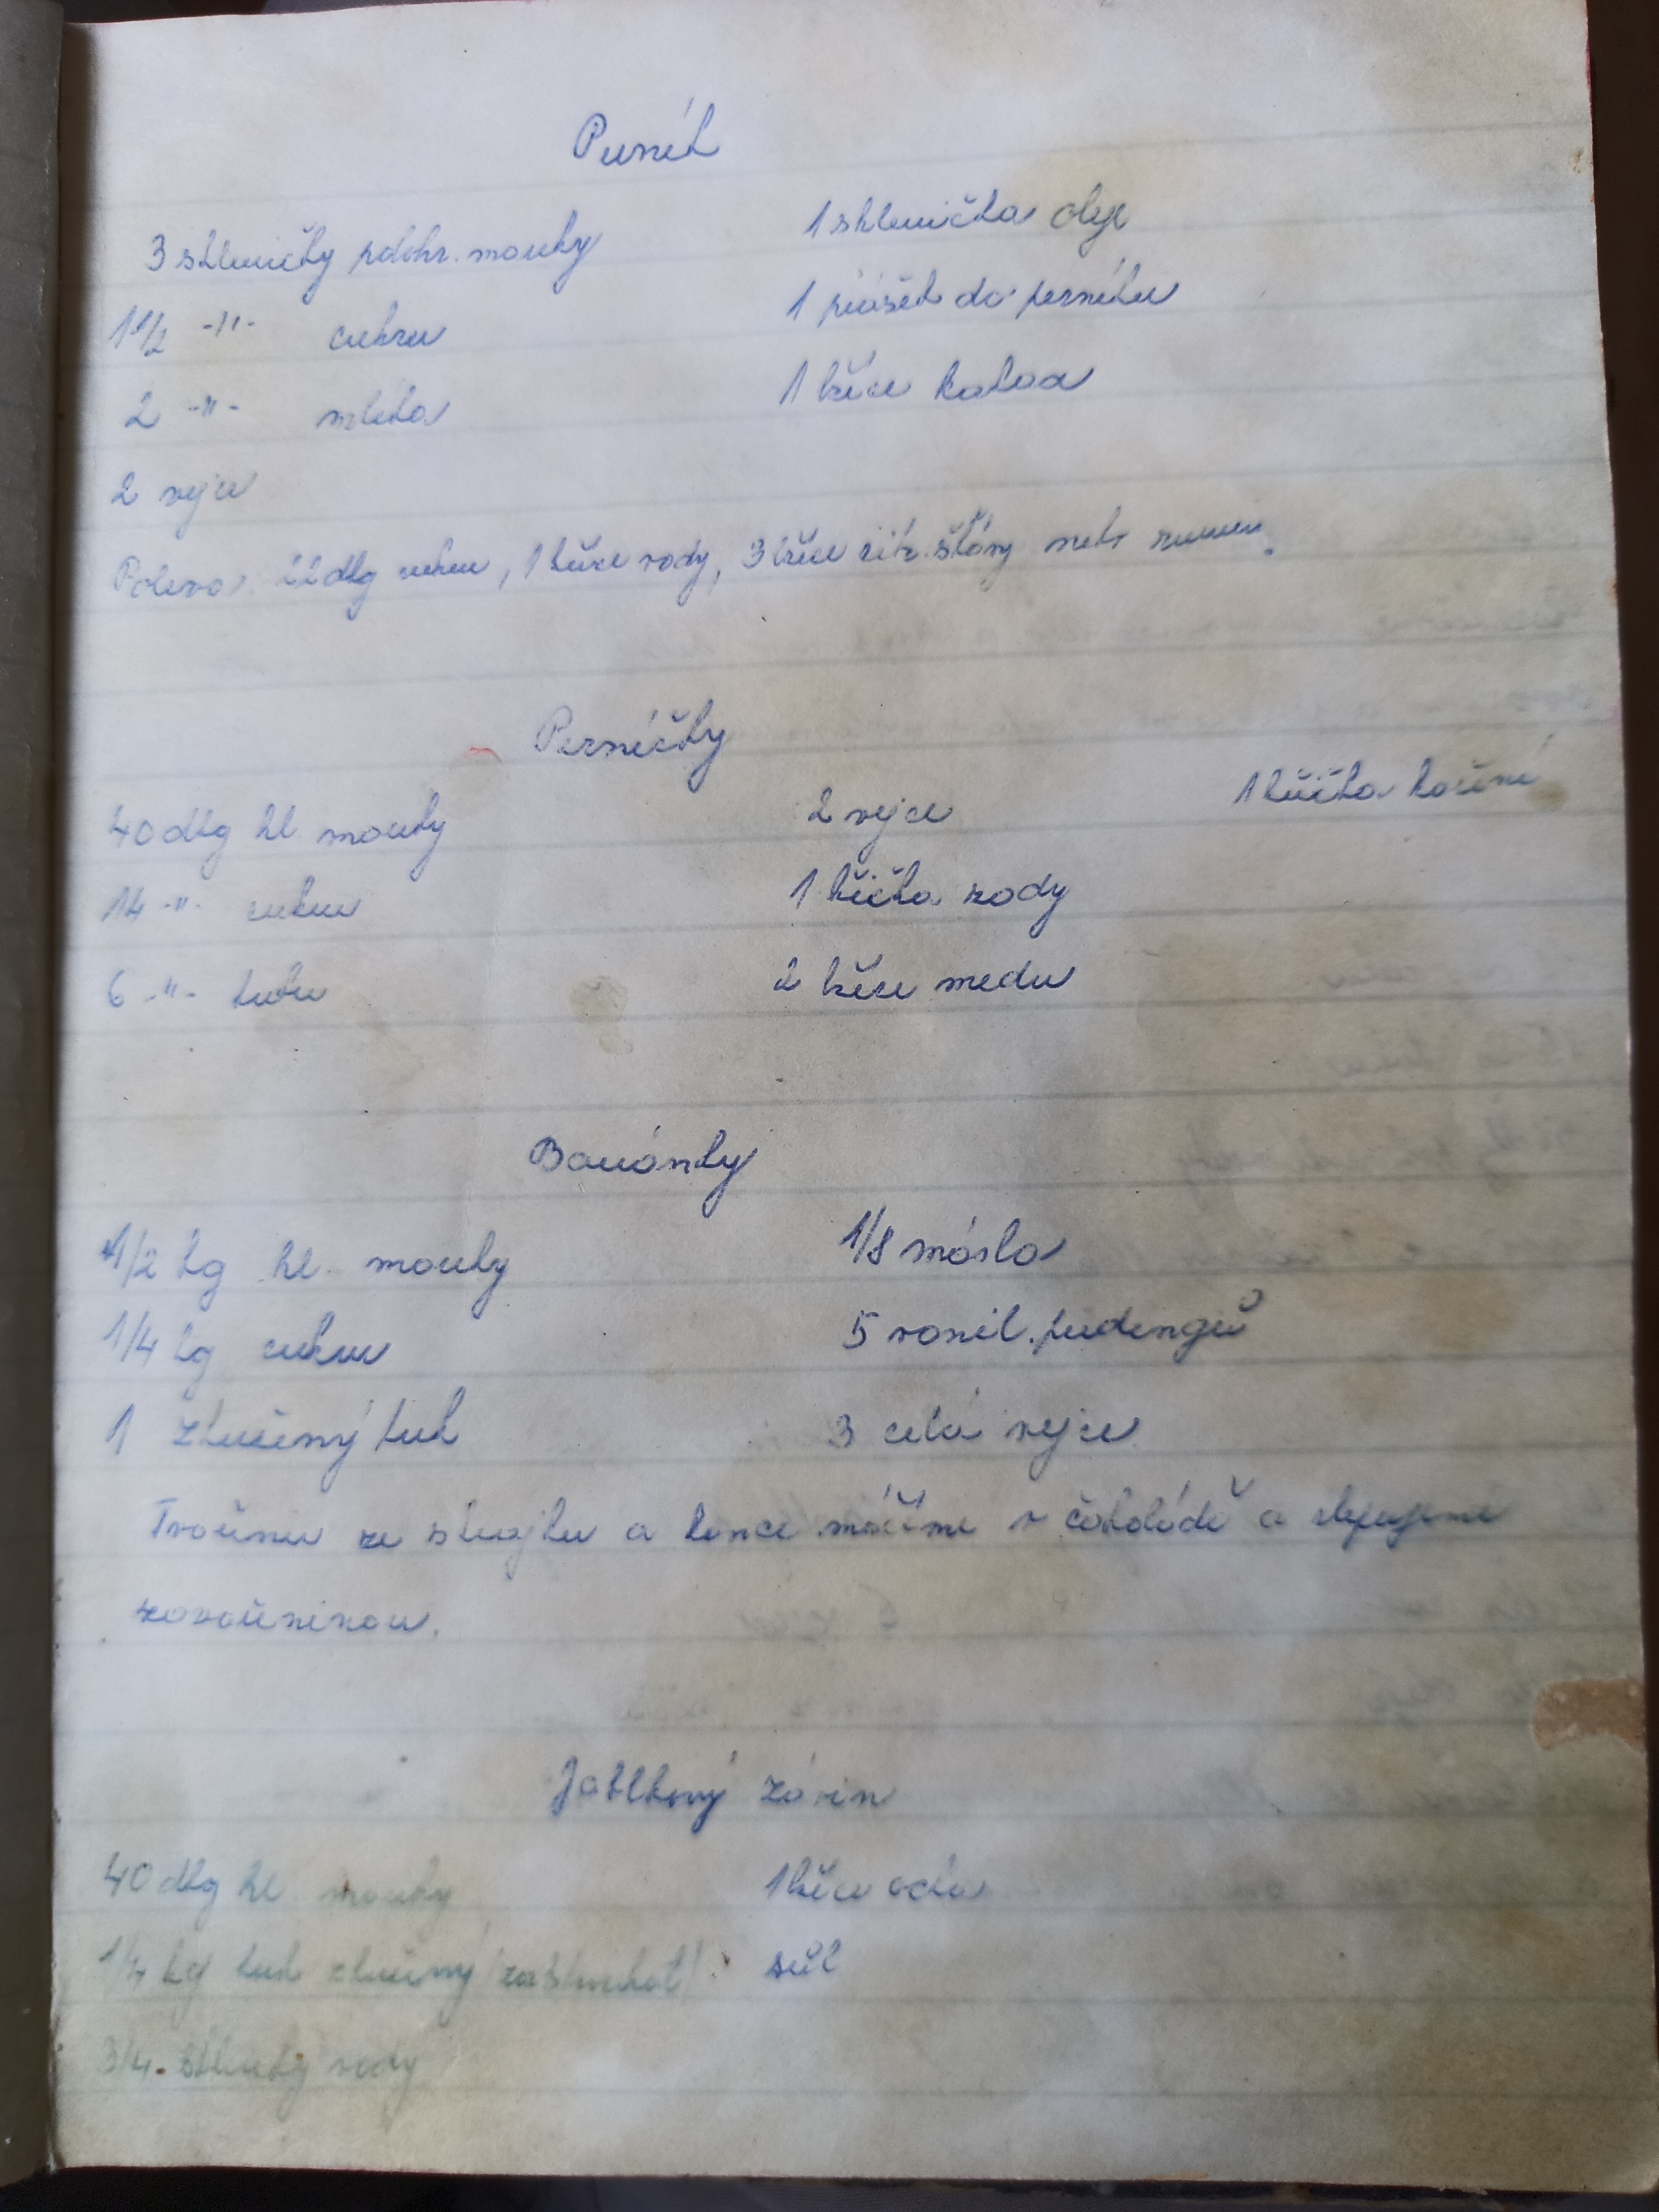 Perník
3 skleničky polohr. mouky
1 1/2 -"- cukru
2 -"- mléka
2 vejce
1 sklenička oleje
1 prášek do perníku
1 lžíce kakaa
Poleva: 22 dkg cukru, 1 lžíce vody, 3 lžíce citr. šťávy nebo rumu.
Perníčky
40 dkg hl. mouky
14 -"- cukru
6 -"- tuku
2 vejce
1 lžička sody
2 lžíce medu
1 lžička koření
Banánky
1/2 kg hl. mouky
1/4 kg cukru
1 ztužený tuk
1/8 másla
5 vanil. pudingů
3 celá vejce
Tvoříme ze strojku a konce máčíme v čokoládě a slepujeme
zavařeninou.
Jablkový závin
40 dkg hl. mouky
1/4 kg tuk ztužený
3/4 sklenky vody
1 lžíce octa
sůl